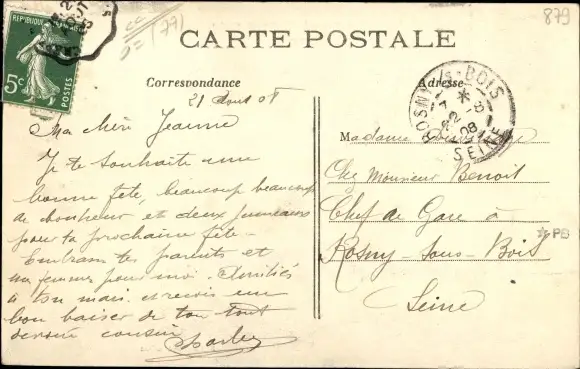 879
(77)
RÉPUBLIQUE FRANÇAISE
5c
POSTES
CARTE POSTALE
Correspondance
Adresse
21 Août 08
ROSNY-s-BOIS
7 *
22-8
08
SEINE
Ma chère Jeanne
Je te souhaite une
bonne fête, beaucoup beaucoup
de bonheur et deux jumeaux
pour ta prochaine fête -
Embrasse tes parents et
pour moi. Amitiés
à ton mari et reçois un
bon baiser de ton tout
dévoué cousin
Madame
Chez Monsieur Benoit
Chef de Gare à
Rosny-sous-Bois
Seine
PB